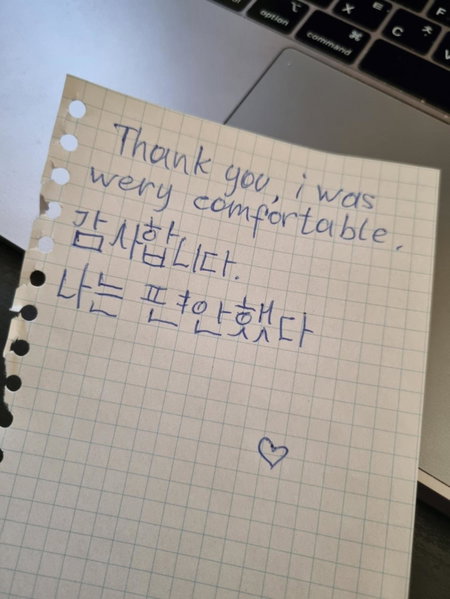 F
option ⌥ X ㅌ
command ⌘ C ㅊ
Thank you, i was
wery comfortable.
감사합니다.
나는 편안했다
♡